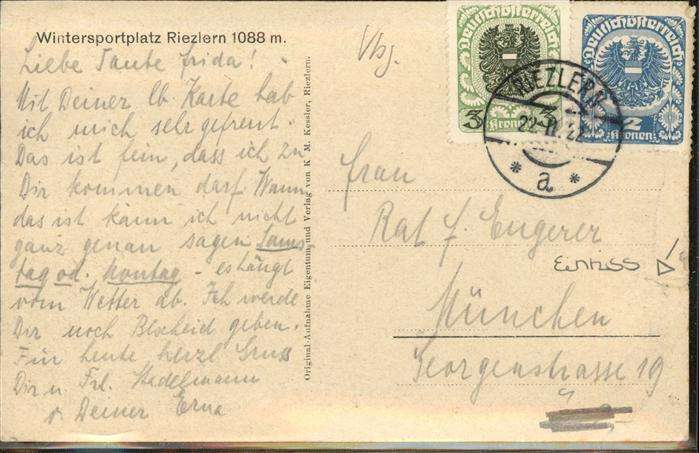 Wintersportplatz Riezlern 1088 m.
Liebe Tante Frida!
Mit Deiner lb. Karte hab
ich mich sehr gefreut.
Das ist fein, dass ich zu
Dir kommen darf. Wann
das ist kann ich nicht
ganz genau sagen Sams
tag od. Montag - es hängt
vom Wetter ab. Ich werde
Dir noch Bescheid geben.
Für heute herzl. Gruss
Dir u. Frl. Hadelmann
v. Deiner Erna
Original-Aufnahme Eigentum und Verlag von K M. Kessler, Riezlern.
Vbg.
Deutschösterreich
3 Kronen 3
Deutschösterreich
2 Kronen
RIEZLERN
22
* a *
Frau
Rat F. Eungerer
EINRISS
München
Georgenstrasse 19